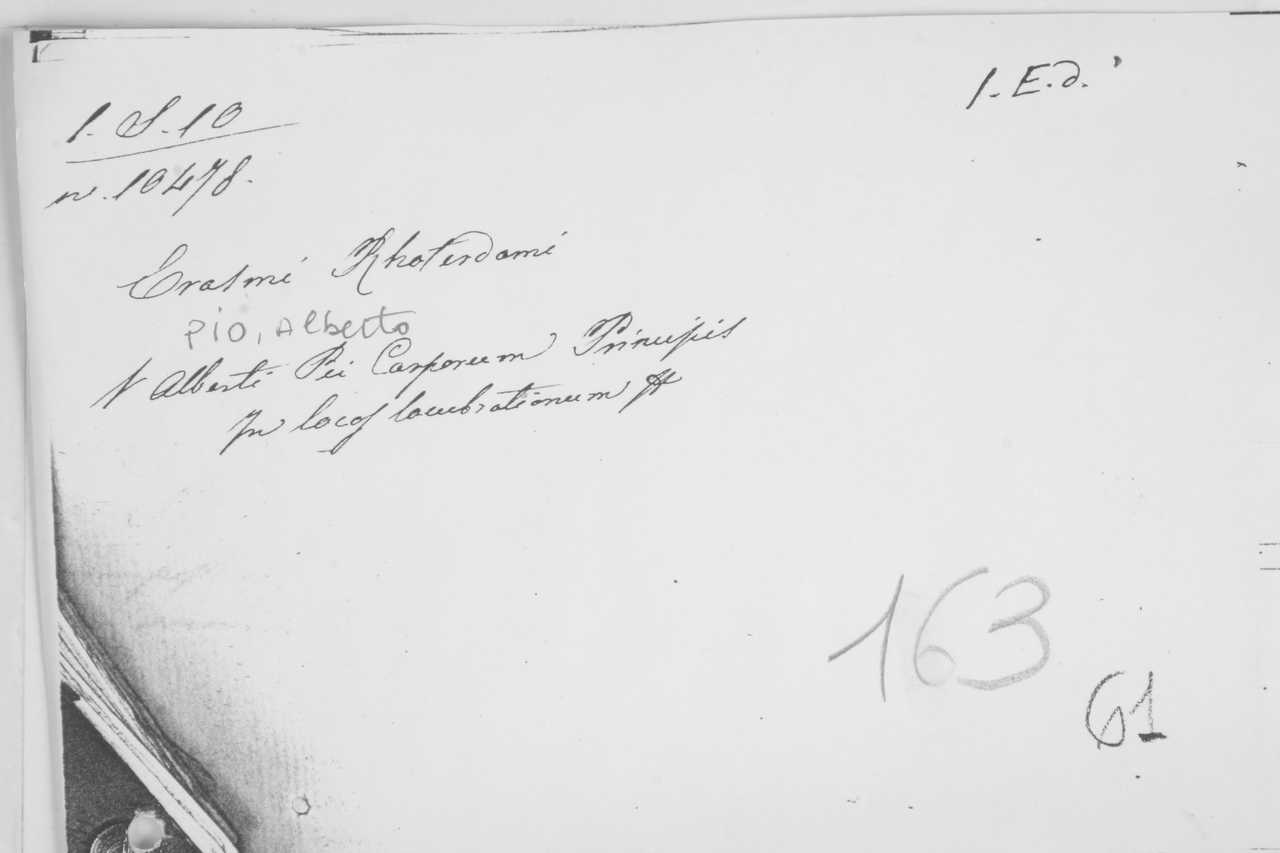 1. E.d.
1. S. 10
n. 10478.
Erasmi Rhoterdami
PIO, Alberto
Alberti Pii Carporum Principis
In locos lucubrationum
163
61